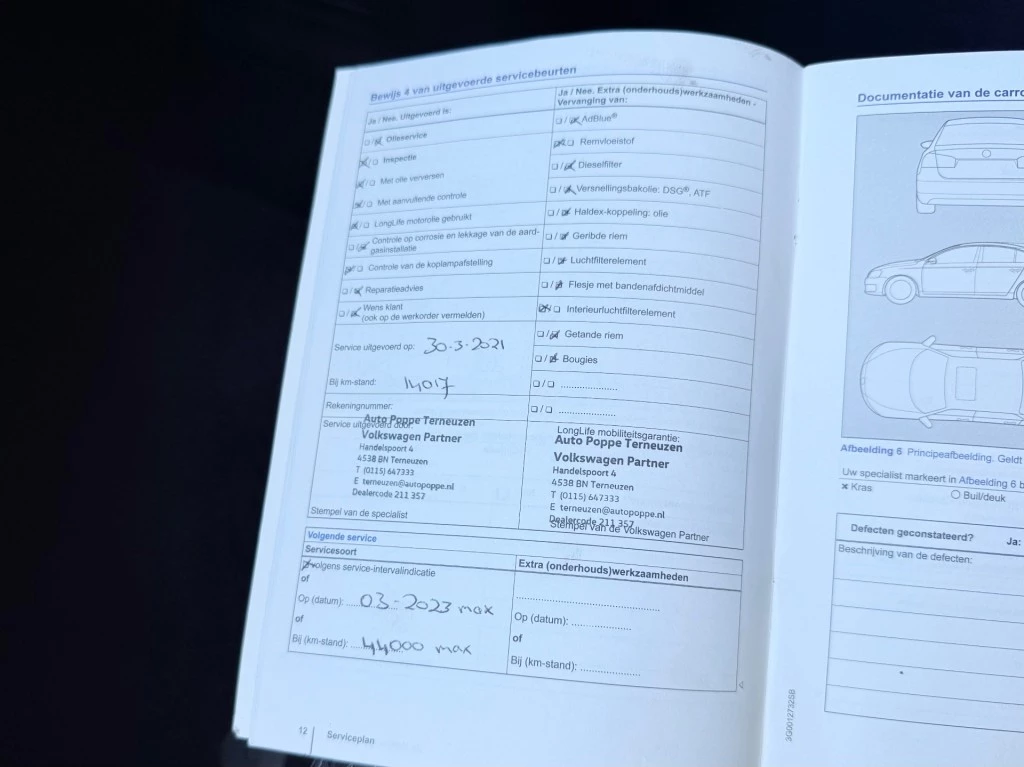 Bewijs 4 van uitgevoerde servicebeurten
Ja / Nee. Uitgevoerd is:
❏ / ❏ Olieservice
❏ / ❏ Inspectie
❏ / ❏ Met olie verversen
❏ / ❏ Met aanvullende controle
❏ / ❏ LongLife motorolie gebruikt
❏ / ❏ Controle op corrosie en lekkage van de aard-
gasinstallatie
❏ / ❏ Controle van de koplampafstelling
❏ / ❏ Reparatieadvies
❏ / ❏ Wens klant
(ook op de werkorder vermelden)
Service uitgevoerd op: 30-3-2021
Bij km-stand: 14017
Rekeningnummer:
Service uitgevoerd door:
Auto Poppe Terneuzen
Volkswagen Partner
Handelspoort 4
4538 BN Terneuzen
T (0115) 647333
E terneuzen@autopoppe.nl
Dealercode 211 357
Stempel van de specialist
Ja / Nee. Extra (onderhouds)werkzaamheden -
Vervanging van:
❏ / ❏ AdBlue®
❏ / ❏ Remvloeistof
❏ / ❏ Dieselfilter
❏ / ❏ Versnellingsbakolie: DSG®, ATF
❏ / ❏ Haldex-koppeling: olie
❏ / ❏ Geribde riem
❏ / ❏ Luchtfilterelement
❏ / ❏ Flesje met bandenafdichtmiddel
❏ / ❏ Interieurluchtfilterelement
❏ / ❏ Getande riem
❏ / ❏ Bougies
❏ / ❏ ....................
❏ / ❏ ....................
LongLife mobiliteitsgarantie:
Auto Poppe Terneuzen
Volkswagen Partner
Handelspoort 4
4538 BN Terneuzen
T (0115) 647333
E terneuzen@autopoppe.nl
Dealercode 211 357
Stempel van de Volkswagen Partner
Volgende service
Servicesoort
volgens service-intervalindicatie
of
Op (datum): 03-2023 max
of
Bij (km-stand): 44000 max
Extra (onderhouds)werkzaamheden
Op (datum): ....................
of
Bij (km-stand): ....................
12
Serviceplan
Documentatie van de carro
Afbeelding 6 Principeafbeelding. Geldt
Uw specialist markeert in Afbeelding 6 b
× Kras
○ Buil/deuk
Defecten geconstateerd? Ja:
Beschrijving van de defecten:
3G0012732SB